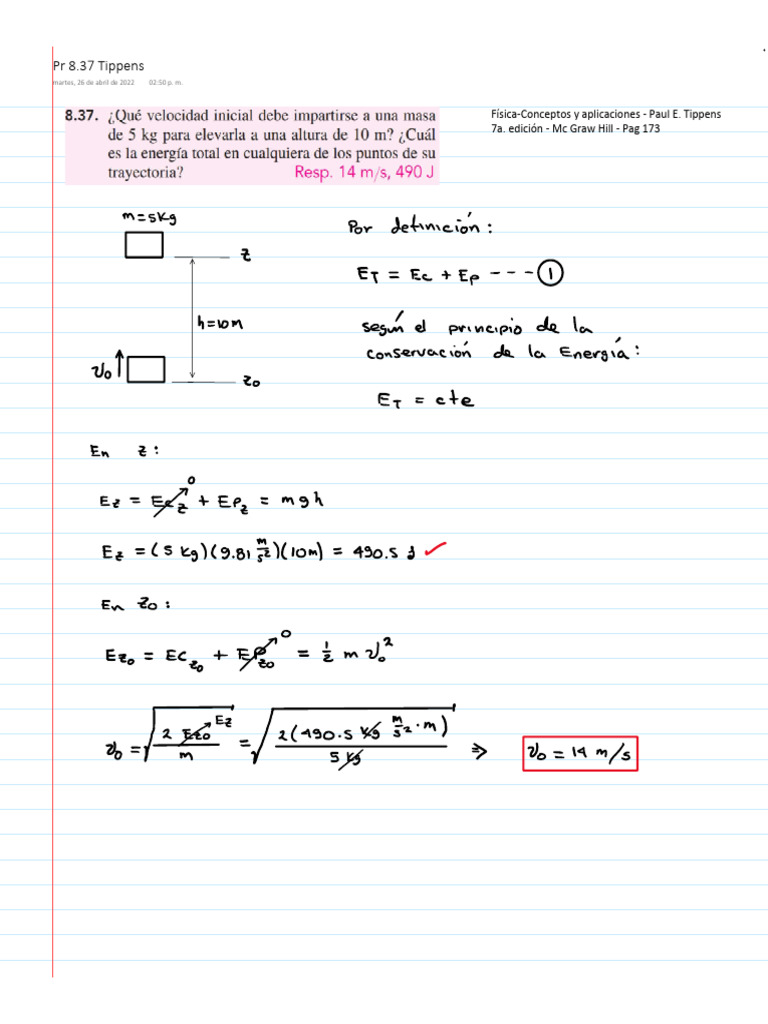 Pr 8.37 Tippens
martes, 26 de abril de 2022 02:50 p. m.
8.37. ¿Qué velocidad inicial debe impartirse a una masa
de 5 kg para elevarla a una altura de 10 m? ¿Cuál
es la energía total en cualquiera de los puntos de su
trayectoria? Resp. 14 m/s, 490 J
Física-Conceptos y aplicaciones - Paul E. Tippens
7a. edición - Mc Graw Hill - Pag 173
m=5Kg
z
h=10m
v₀
z₀
Por definición:
E_T = Ec + Ep --- ①
según el principio de la
conservación de la Energía:
E_T = cte
En z:
E_z = Ec_z 0 + Ep_z = mgh
E_z = (5 Kg)(9.81 m/s²)(10m) = 490.5 J ✓
En z₀:
E_z₀ = Ec_z₀ + Ep_z₀ 0 = 1/2 m v₀²
v₀ = √(2 E_z₀ E_z / m) = √(2(490.5 Kg m/s² · m) / 5 Kg) ⇒ v₀ = 14 m/s